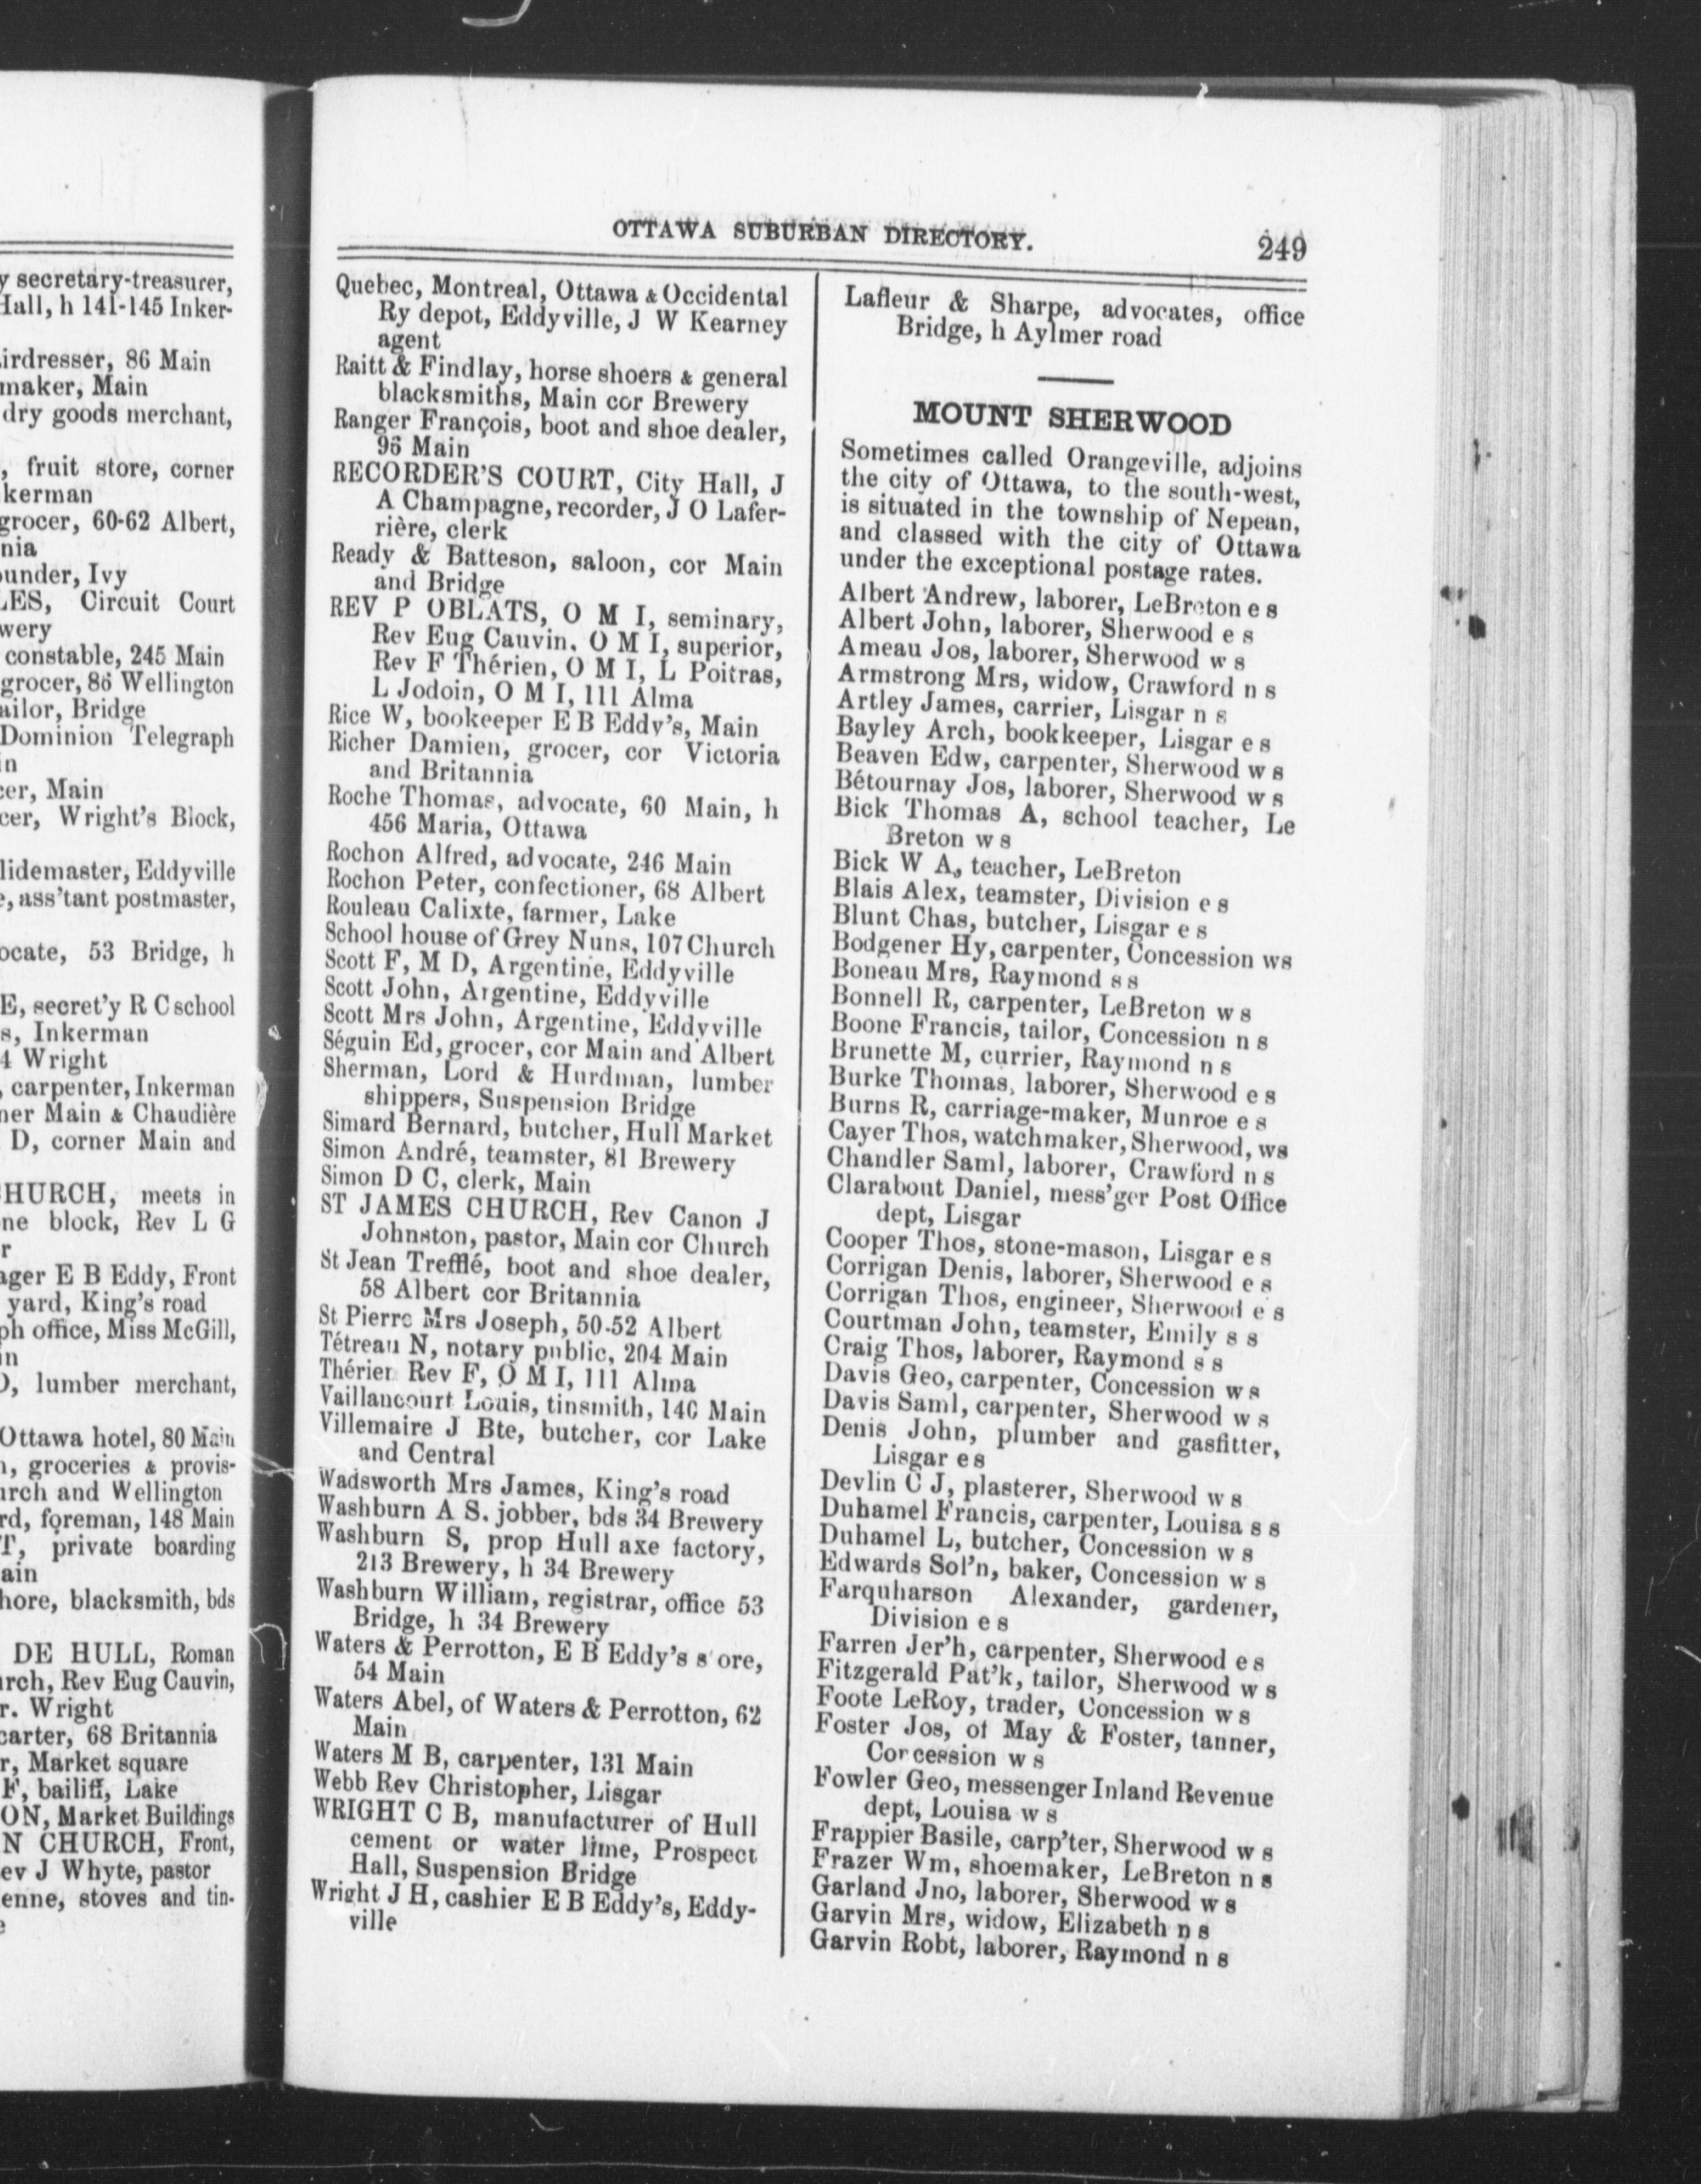 y secretary-treasurer,
Hall, h 141-145 Inker-
irdresser, 86 Main
maker, Main
dry goods merchant,
, fruit store, corner
kerman
grocer, 60-62 Albert,
nia
ounder, Ivy
LES, Circuit Court
wery
constable, 245 Main
grocer, 86 Wellington
ailor, Bridge
Dominion Telegraph
in
cer, Main
cer, Wright's Block,
lidemaster, Eddyville
e, ass'tant postmaster,
ocate, 53 Bridge, h
E, secret'y R C school
s, Inkerman
4 Wright
, carpenter, Inkerman
ner Main & Chaudière
D, corner Main and
HURCH, meets in
ne block, Rev L G
r
ager E B Eddy, Front
yard, King's road
ph office, Miss McGill,
in
), lumber merchant,
Ottawa hotel, 80 Main
n, groceries & provis-
urch and Wellington
rd, foreman, 148 Main
T, private boarding
ain
hore, blacksmith, bds
DE HULL, Roman
urch, Rev Eug Cauvin,
r. Wright
carter, 68 Britannia
r, Market square
F, bailiff, Lake
ON, Market Buildings
N CHURCH, Front,
ev J Whyte, pastor
enne, stoves and tin-
e
OTTAWA SUBURBAN DIRECTORY. 249
Quebec, Montreal, Ottawa & Occidental
Ry depot, Eddyville, J W Kearney
agent
Raitt & Findlay, horse shoers & general
blacksmiths, Main cor Brewery
Ranger François, boot and shoe dealer,
96 Main
RECORDER'S COURT, City Hall, J
A Champagne, recorder, J O Lafer-
rière, clerk
Ready & Batteson, saloon, cor Main
and Bridge
REV P OBLATS, O M I, seminary,
Rev Eug Cauvin, O M I, superior,
Rev F Thérien, O M I, L Poitras,
L Jodoin, O M I, 111 Alma
Rice W, bookeeper E B Eddy's, Main
Richer Damien, grocer, cor Victoria
and Britannia
Roche Thomas, advocate, 60 Main, h
456 Maria, Ottawa
Rochon Alfred, advocate, 246 Main
Rochon Peter, confectioner, 68 Albert
Rouleau Calixte, farmer, Lake
School house of Grey Nuns, 107 Church
Scott F, M D, Argentine, Eddyville
Scott John, Argentine, Eddyville
Scott Mrs John, Argentine, Eddyville
Séguin Ed, grocer, cor Main and Albert
Sherman, Lord & Hurdman, lumber
shippers, Suspension Bridge
Simard Bernard, butcher, Hull Market
Simon André, teamster, 81 Brewery
Simon D C, clerk, Main
ST JAMES CHURCH, Rev Canon J
Johnston, pastor, Main cor Church
St Jean Trefflé, boot and shoe dealer,
58 Albert cor Britannia
St Pierre Mrs Joseph, 50-52 Albert
Tétreau N, notary public, 204 Main
Thérien Rev F, O M I, 111 Alma
Vaillancourt Louis, tinsmith, 140 Main
Villemaire J Bte, butcher, cor Lake
and Central
Wadsworth Mrs James, King's road
Washburn A S, jobber, bds 34 Brewery
Washburn S, prop Hull axe factory,
213 Brewery, h 34 Brewery
Washburn William, registrar, office 53
Bridge, h 34 Brewery
Waters & Perrotton, E B Eddy's s ore,
54 Main
Waters Abel, of Waters & Perrotton, 62
Main
Waters M B, carpenter, 131 Main
Webb Rev Christopher, Lisgar
WRIGHT C B, manufacturer of Hull
cement or water lime, Prospect
Hall, Suspension Bridge
Wright J H, cashier E B Eddy's, Eddy-
ville
Lafleur & Sharpe, advocates, office
Bridge, h Aylmer road
MOUNT SHERWOOD
Sometimes called Orangeville, adjoins
the city of Ottawa, to the south-west,
is situated in the township of Nepean,
and classed with the city of Ottawa
under the exceptional postage rates.
Albert Andrew, laborer, LeBreton e s
Albert John, laborer, Sherwood e s
Ameau Jos, laborer, Sherwood w s
Armstrong Mrs, widow, Crawford n s
Artley James, carrier, Lisgar n s
Bayley Arch, bookkeeper, Lisgar e s
Beaven Edw, carpenter, Sherwood w s
Bétournay Jos, laborer, Sherwood w s
Bick Thomas A, school teacher, Le
Breton w s
Bick W A, teacher, LeBreton
Blais Alex, teamster, Division e s
Blunt Chas, butcher, Lisgar e s
Bodgener Hy, carpenter, Concession ws
Boneau Mrs, Raymond s s
Bonnell R, carpenter, LeBreton w s
Boone Francis, tailor, Concession n s
Brunette M, currier, Raymond n s
Burke Thomas, laborer, Sherwood e s
Burns R, carriage-maker, Munroe e s
Cayer Thos, watchmaker, Sherwood, ws
Chandler Saml, laborer, Crawford n s
Clarabout Daniel, mess'ger Post Office
dept, Lisgar
Cooper Thos, stone-mason, Lisgar e s
Corrigan Denis, laborer, Sherwood e s
Corrigan Thos, engineer, Sherwood e s
Courtman John, teamster, Emily s s
Craig Thos, laborer, Raymond s s
Davis Geo, carpenter, Concession w s
Davis Saml, carpenter, Sherwood w s
Denis John, plumber and gasfitter,
Lisgar e s
Devlin C J, plasterer, Sherwood w s
Duhamel Francis, carpenter, Louisa s s
Duhamel L, butcher, Concession w s
Edwards Sol'n, baker, Concession w s
Farquharson Alexander, gardener,
Division e s
Farren Jer'h, carpenter, Sherwood e s
Fitzgerald Pat'k, tailor, Sherwood w s
Foote LeRoy, trader, Concession w s
Foster Jos, of May & Foster, tanner,
Concession w s
Fowler Geo, messenger Inland Revenue
dept, Louisa w s
Frappier Basile, carp'ter, Sherwood w s
Frazer Wm, shoemaker, LeBreton n s
Garland Jno, laborer, Sherwood w s
Garvin Mrs, widow, Elizabeth n s
Garvin Robt, laborer, Raymond n s